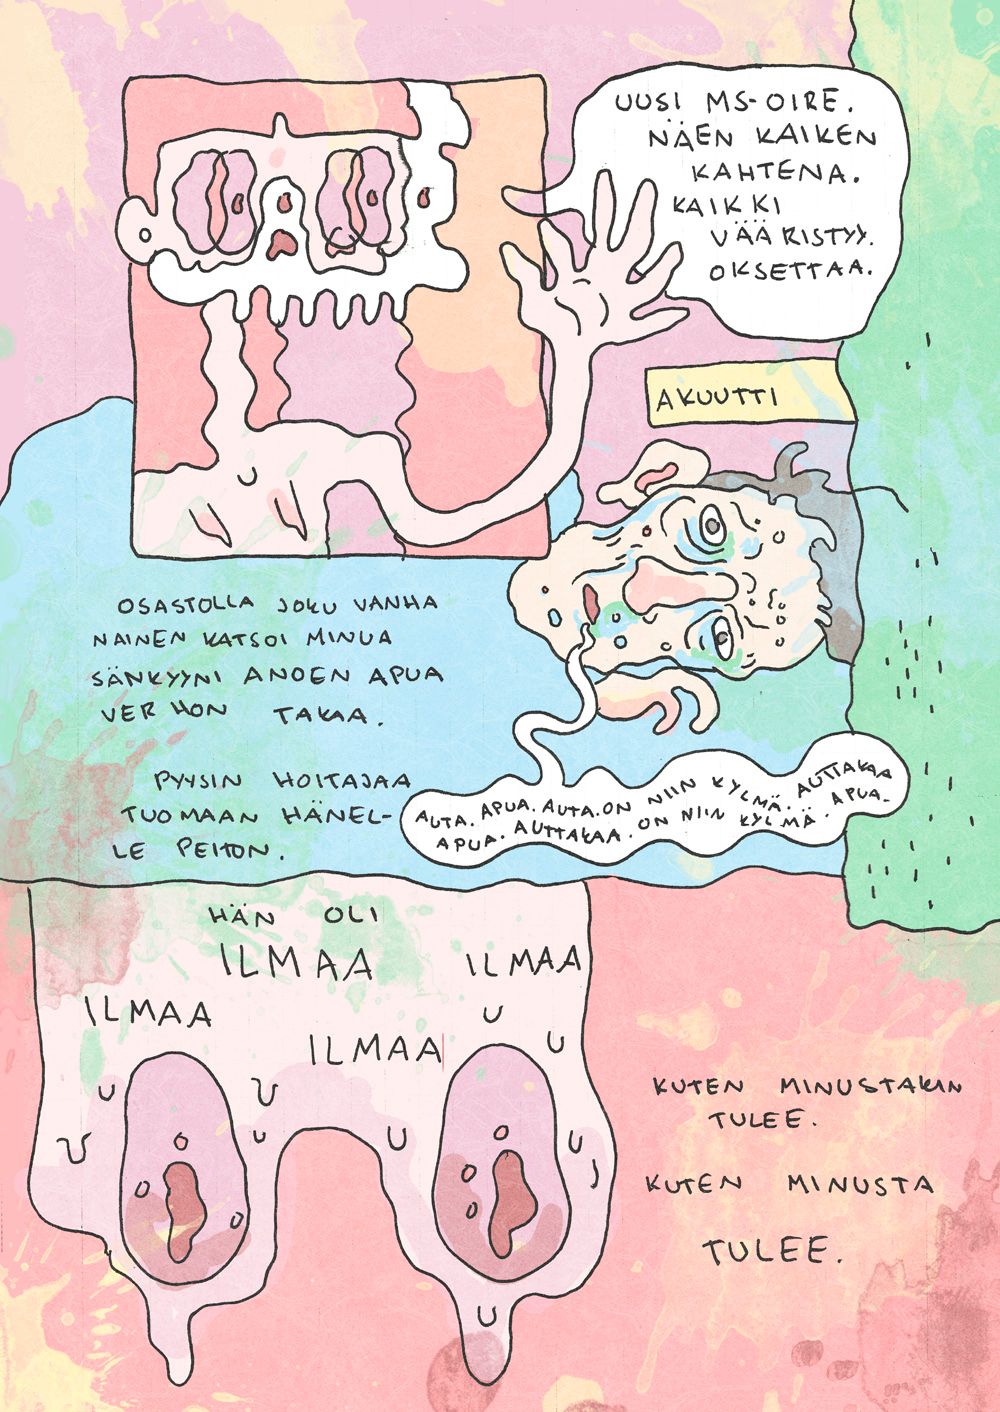 UUSI MS-OIRE.
NÄEN KAIKEN
KAHTENA.
KAIKKI
VÄÄRISTYY.
OKSETTAA.
AKUUTTI
OSASTOLLA JOKU VANHA
NAINEN KATSOI MINUA
SÄNKYYNI ANOEN APUA
VERHON TAKAA.
PYYSIN HOITAJAA
TUOMAAN HÄNEL-
LE PEITON.
AUTA. APUA. AUTA. ON NIIN KYLMÄ. AUTTAKAA
APUA. AUTTAKAA. ON NIIN KYLMÄ. APUA.
HÄN OLI
ILMAA
ILMAA
ILMAA
ILMAA
KUTEN MINUSTAKIN
TULEE.
KUTEN MINUSTA
TULEE.